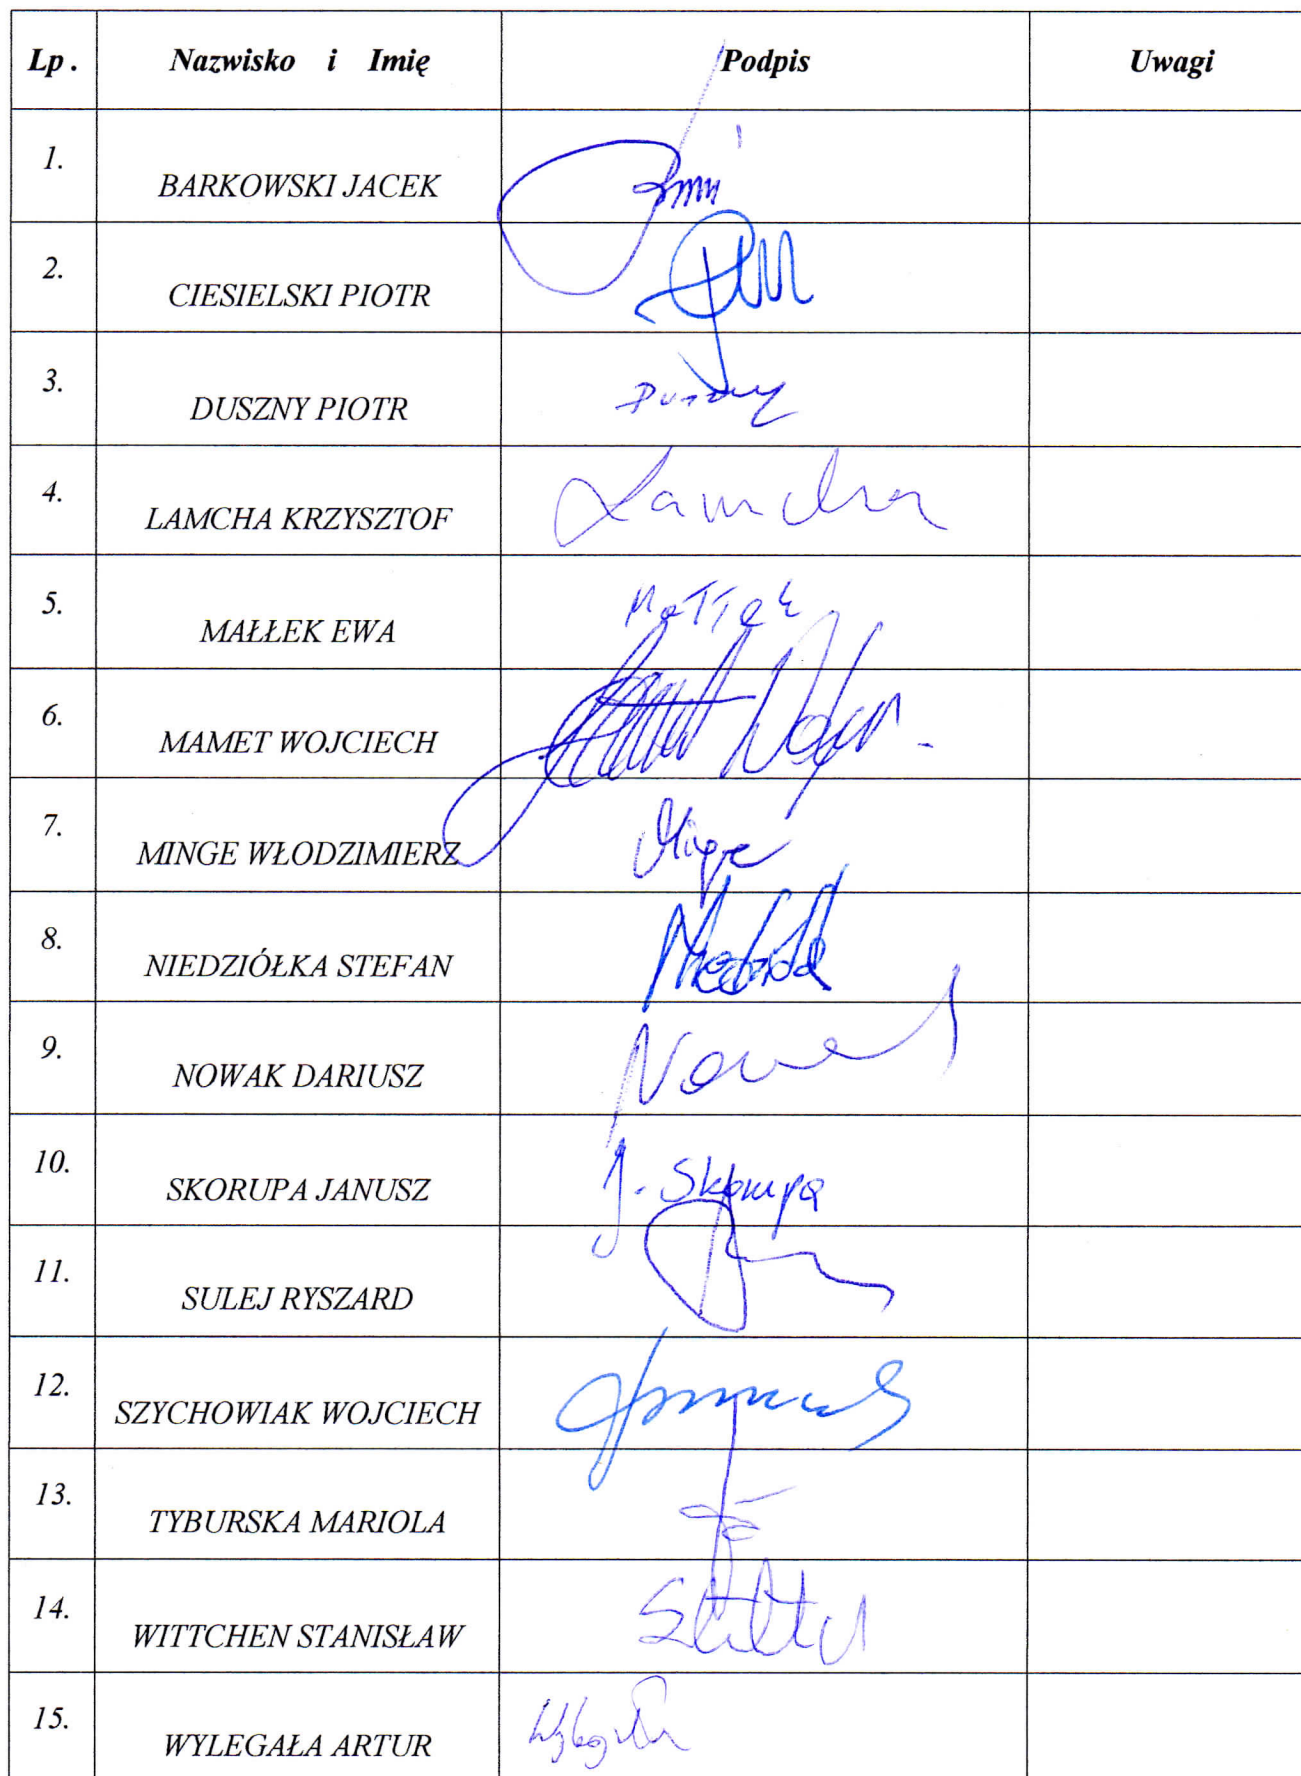 Lp. Nazwisko i Imię Podpis Uwagi
1. BARKOWSKI JACEK
2. CIESIELSKI PIOTR
3. DUSZNY PIOTR Duszny
4. LAMCHA KRZYSZTOF Lamcha
5. MAŁŁEK EWA Małłek
6. MAMET WOJCIECH
7. MINGE WŁODZIMIERZ Minge
8. NIEDZIÓŁKA STEFAN
9. NOWAK DARIUSZ Nowak
10. SKORUPA JANUSZ J. Skorupa
11. SULEJ RYSZARD
12. SZYCHOWIAK WOJCIECH
13. TYBURSKA MARIOLA
14. WITTCHEN STANISŁAW
15. WYLEGAŁA ARTUR